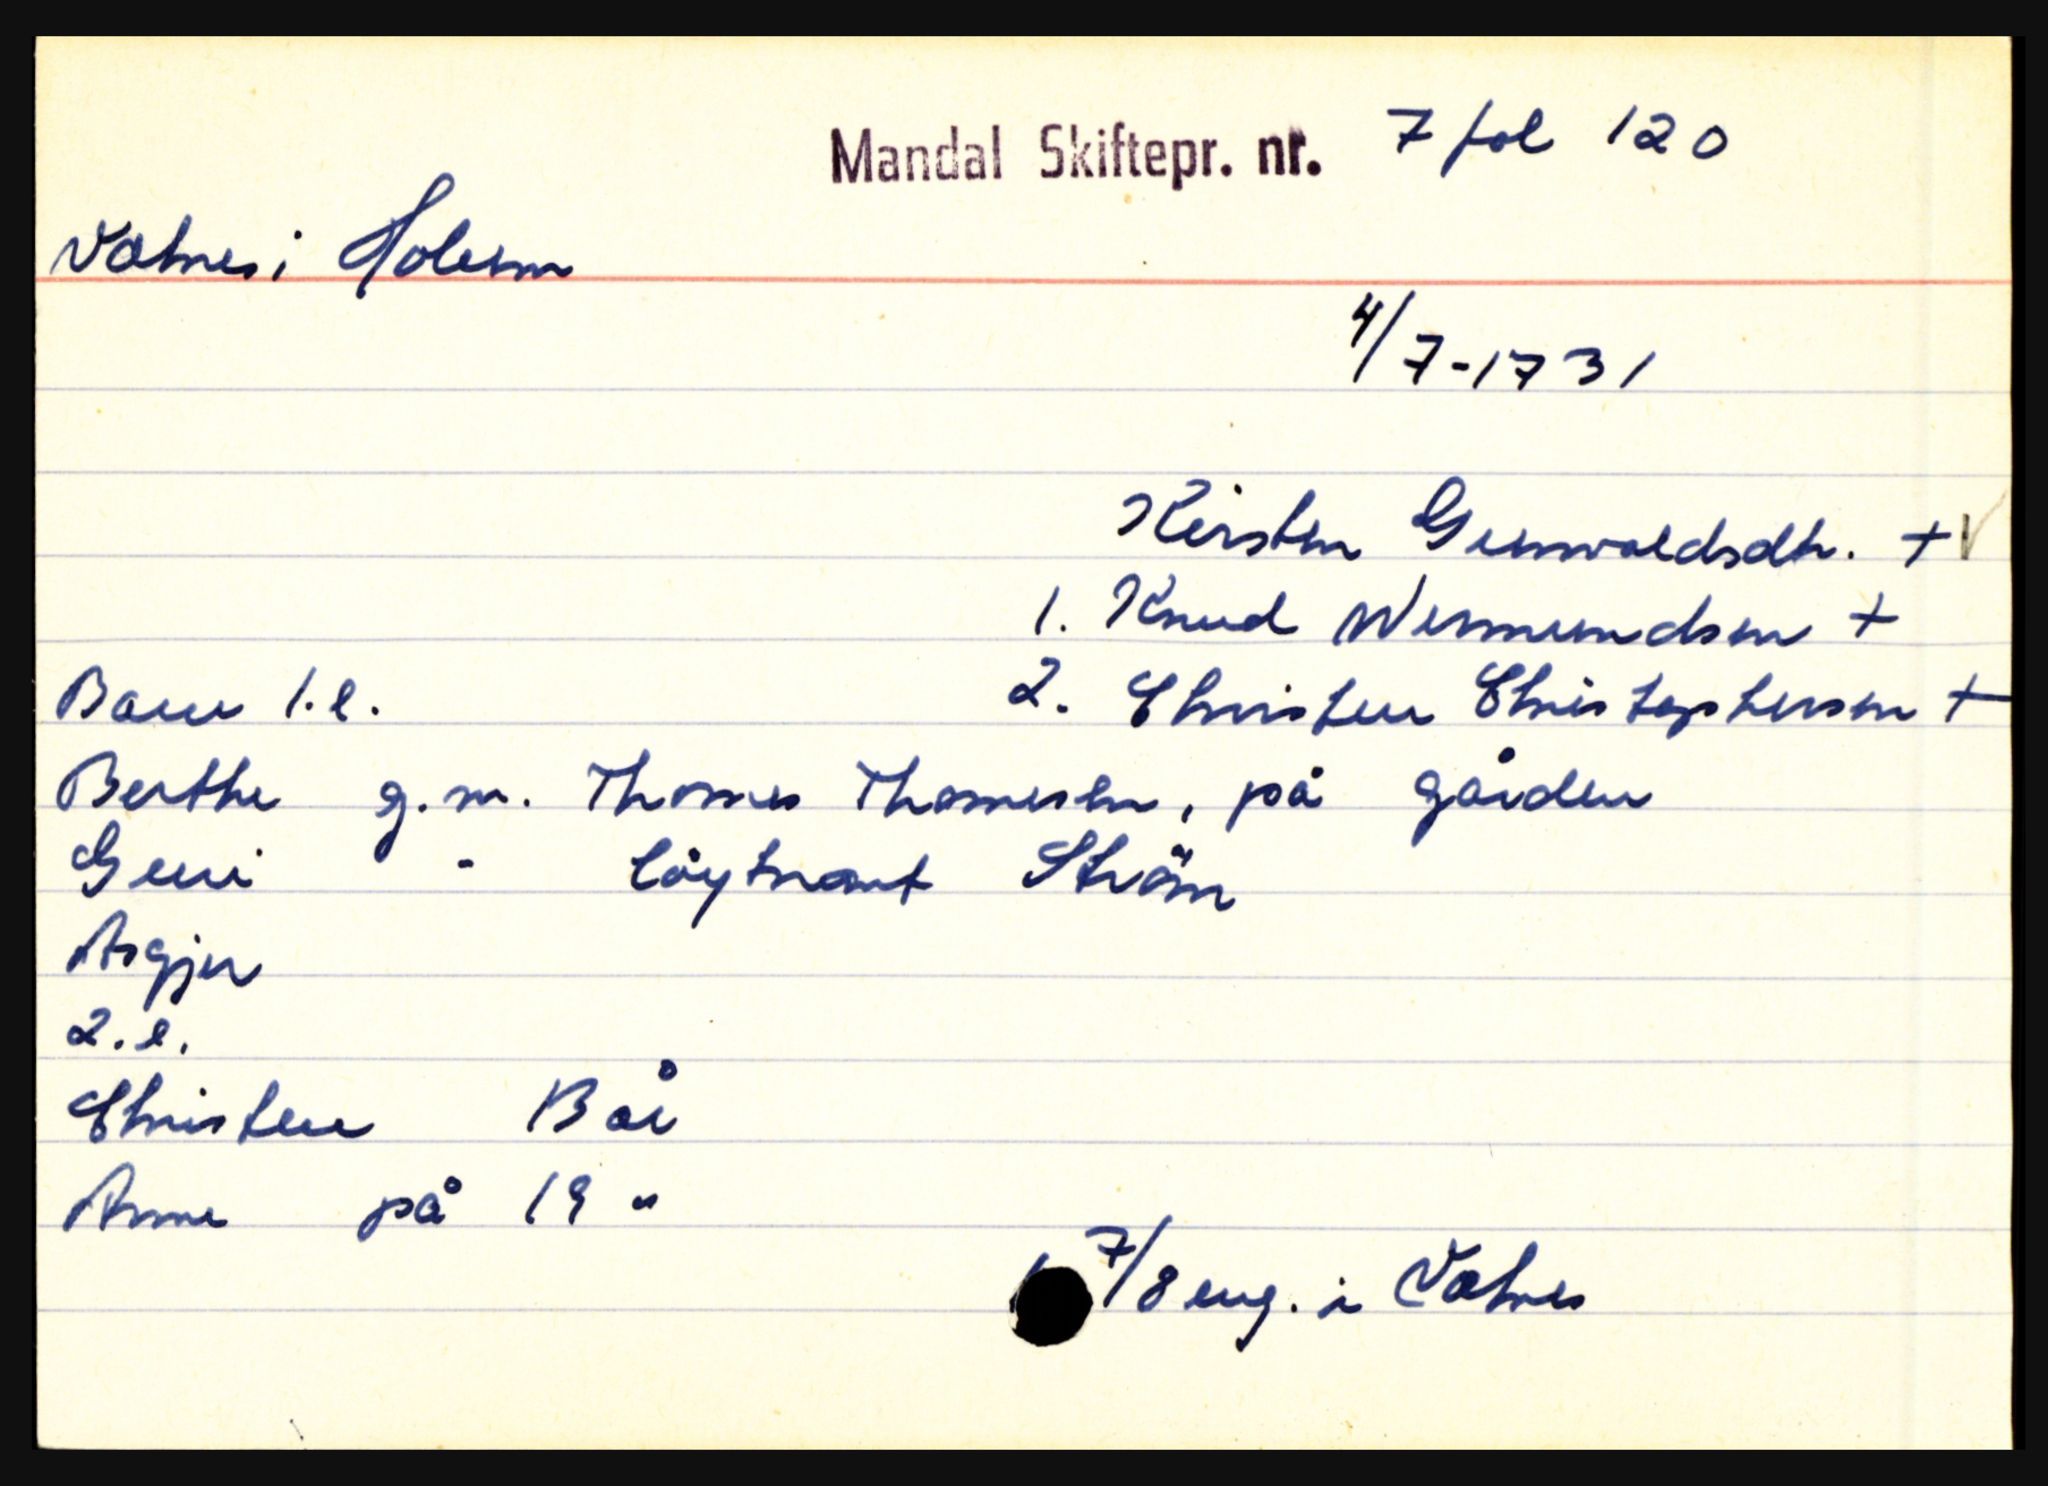 Mandal Skiftepr. nr. 7 fol 120
Vatnes i Holum
4/7-1731
Kirsten Gunvaldsdtr. + V
1. Knud Wermundsen +
Barn 1.e. 2. Christen Christophersen +
Berthe g.m. Thomes Thomesen, på gården
Guri " löytnant Ström
Asgjer
2.e.
Christen 13 år
Anne på 19 "
7/8 eng. i Vatnes